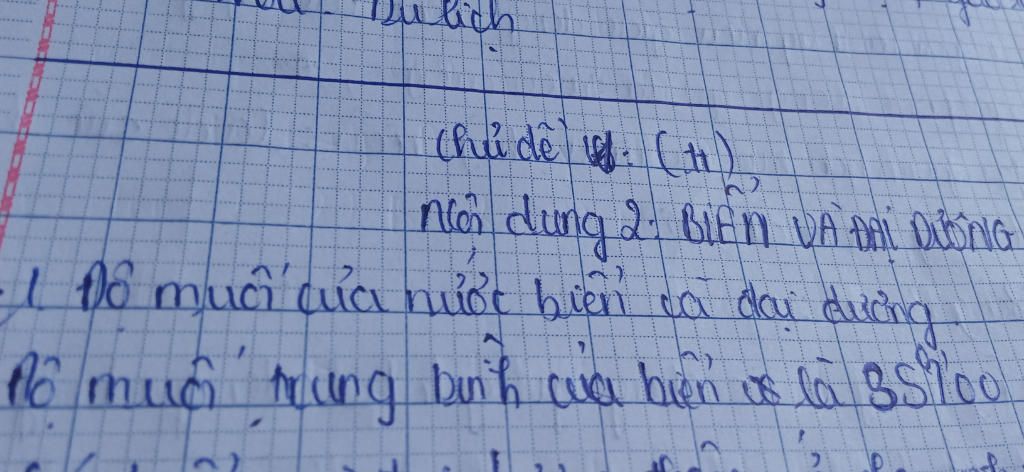 Du lịch
Chủ đề : (tt)
Nội dung 2: BIỂN VÀ ĐẠI DƯƠNG
1 Độ muối của nước biển và đại dương
Độ muối trung bình của biển là 35%00